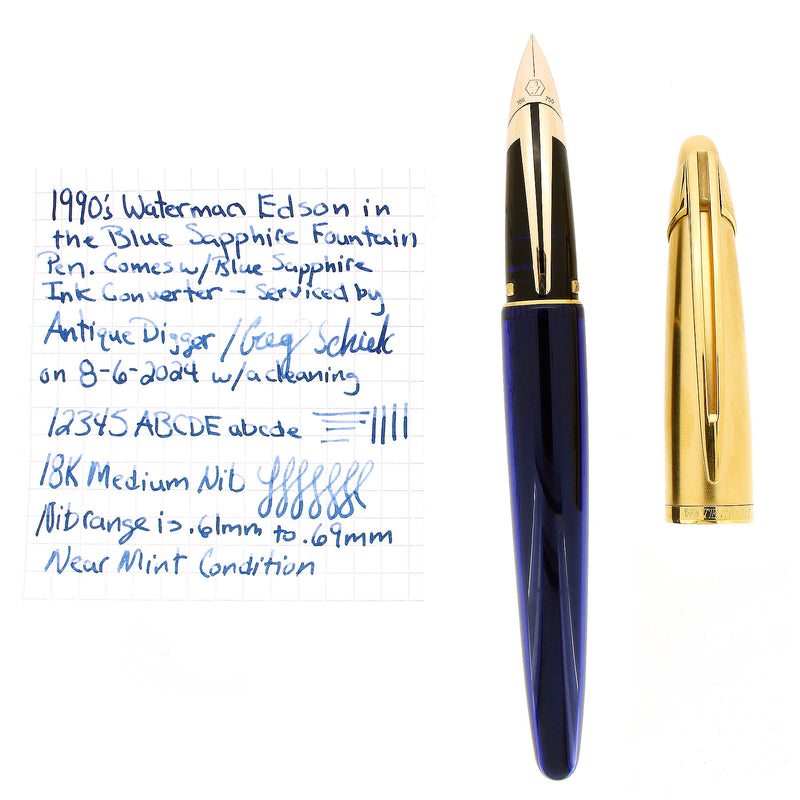 1990's Waterman Edson in
the Blue Sapphire Fountain
Pen. Comes w/Blue Sapphire
Ink Converter - serviced by
Antique Digger / Greg Schiek
on 8-6-2024 w/a cleaning
12345 ABCDE abcde
18K Medium Nib
Nib range is .61mm to .69mm
Near Mint Condition
18K 750